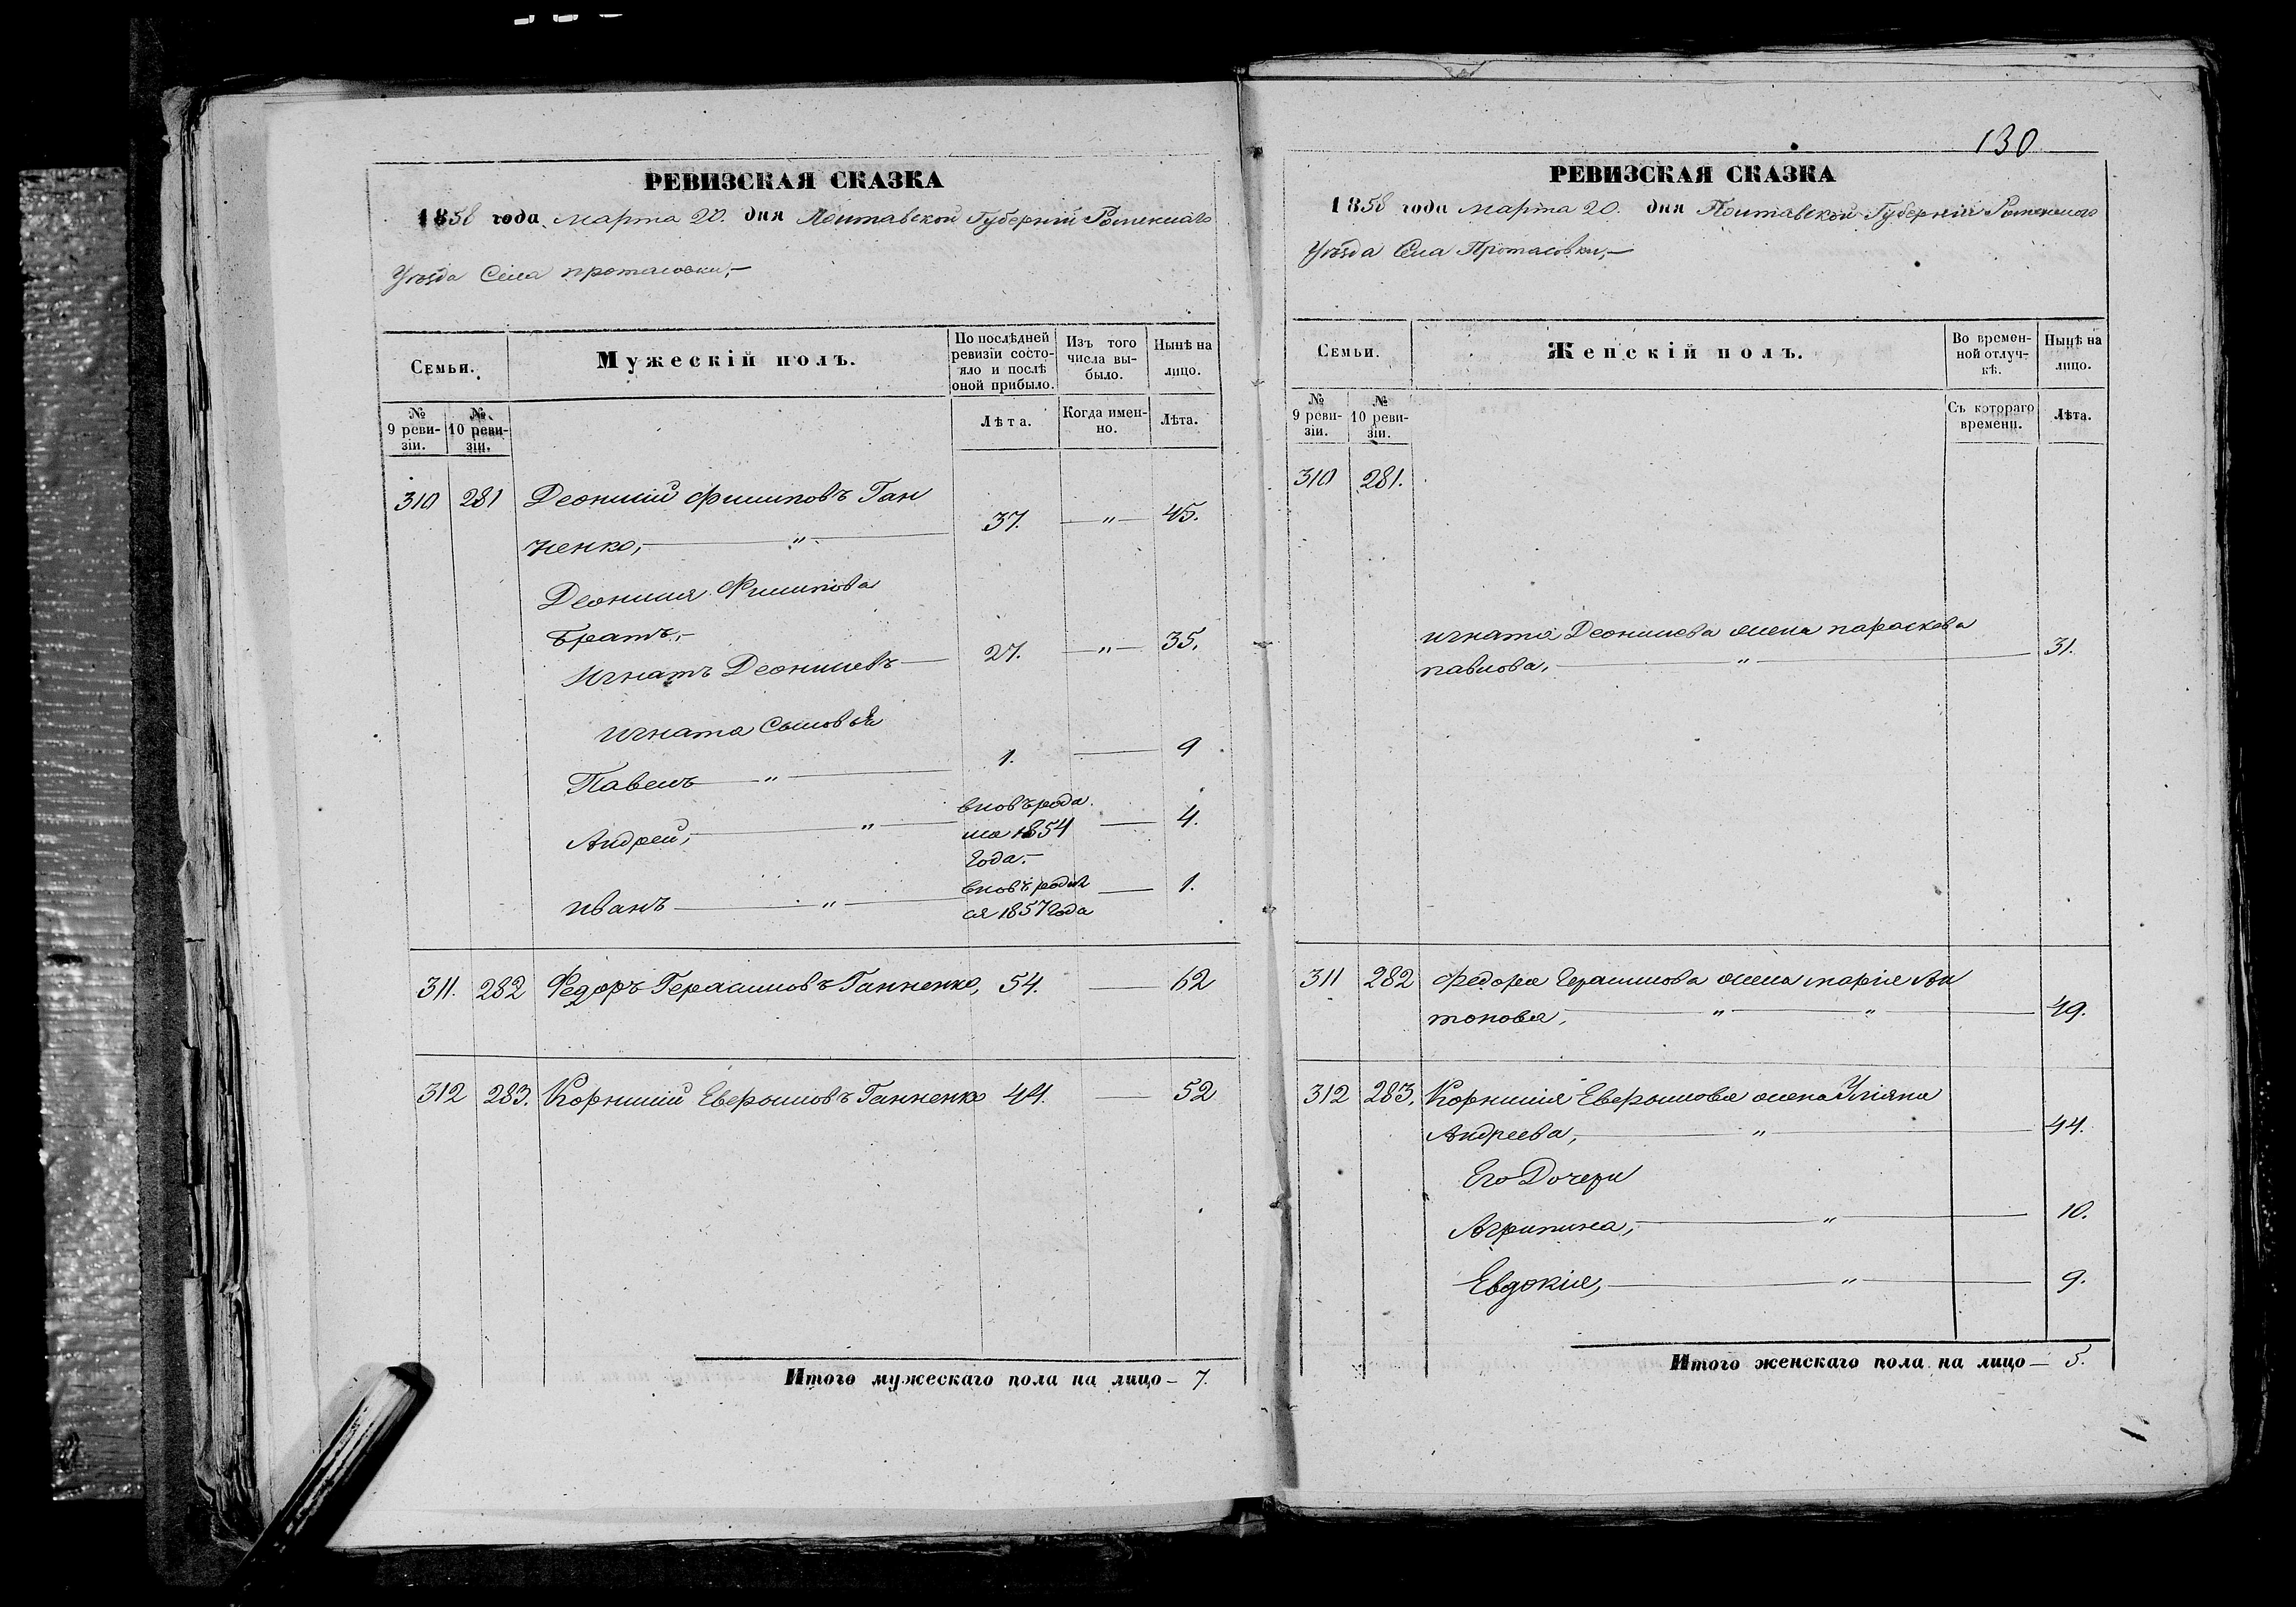 РЕВИЗСКАЯ СКАЗКА
1858 года марта 20. дня Полтавской Губерніи Роменскаго
Уѣзда Села протасовки,-
Семьи.
Мужескій полъ.
По послѣдней ревизіи состояло и послѣ оной прибыло.
Изъ того числа выбыло.
Нынѣ на лицо.
№ 9 ревизіи.
№ 10 ревизіи.
Лѣта.
Когда именно.
Лѣта.
310 281 Деонисій Филиповъ Ган
ненко, " 37. " 45.
Деонисия Филипова
братъ,-
Игнатъ Деонисиевъ 27. " 35.
игната Сыновья
Павелъ " 1. 9
Андрей, " вновърода
лся 1854 4.
года.-
иванъ " вновъродил 1.
ся 1857 года
311. 282 Федоръ Герасимовъ Ганненко, 54. 62
312 283. Корнилий Еверомовъ Ганненко 44. 52
Итого мужескаго пола на лицо – 7.
130
РЕВИЗСКАЯ СКАЗКА
1858 года марта 20. дня Полтавской Губерніи Роменскаго
Уѣзда Села Протасовки,-
Семьи.
Женскій полъ.
Во временной отлучкѣ.
Нынѣ на лицо.
№ 9 ревизіи.
№ 10 ревизіи.
Съ котораго времени.
Лѣта.
310 281.
игната Деонисиева жена параскева
павлова, " 31.
311 282 Федора Герасимова жена марія Ан
тонова, " " 49.
312 283. Корнилія Еверомова жена Уліяна
Андреева, " 44.
Его Дочери
Агрипина, " 10.
Евдокія, " 9.
Итого женскаго пола на лицо – 5.